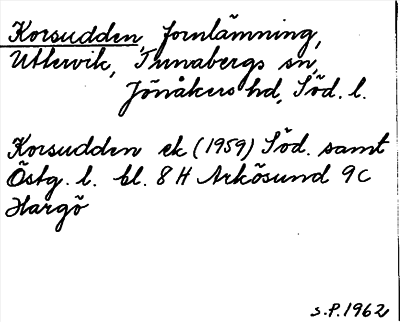 Korsudden, fornlämning,
Uttervik, Tunabergs sn,
Jönåkers hd, Söd. l.
Korsudden ek (1959) Söd. samt
Östg. l. bl. 8 H Arkösund 9 C
Hargö
S.P. 1962